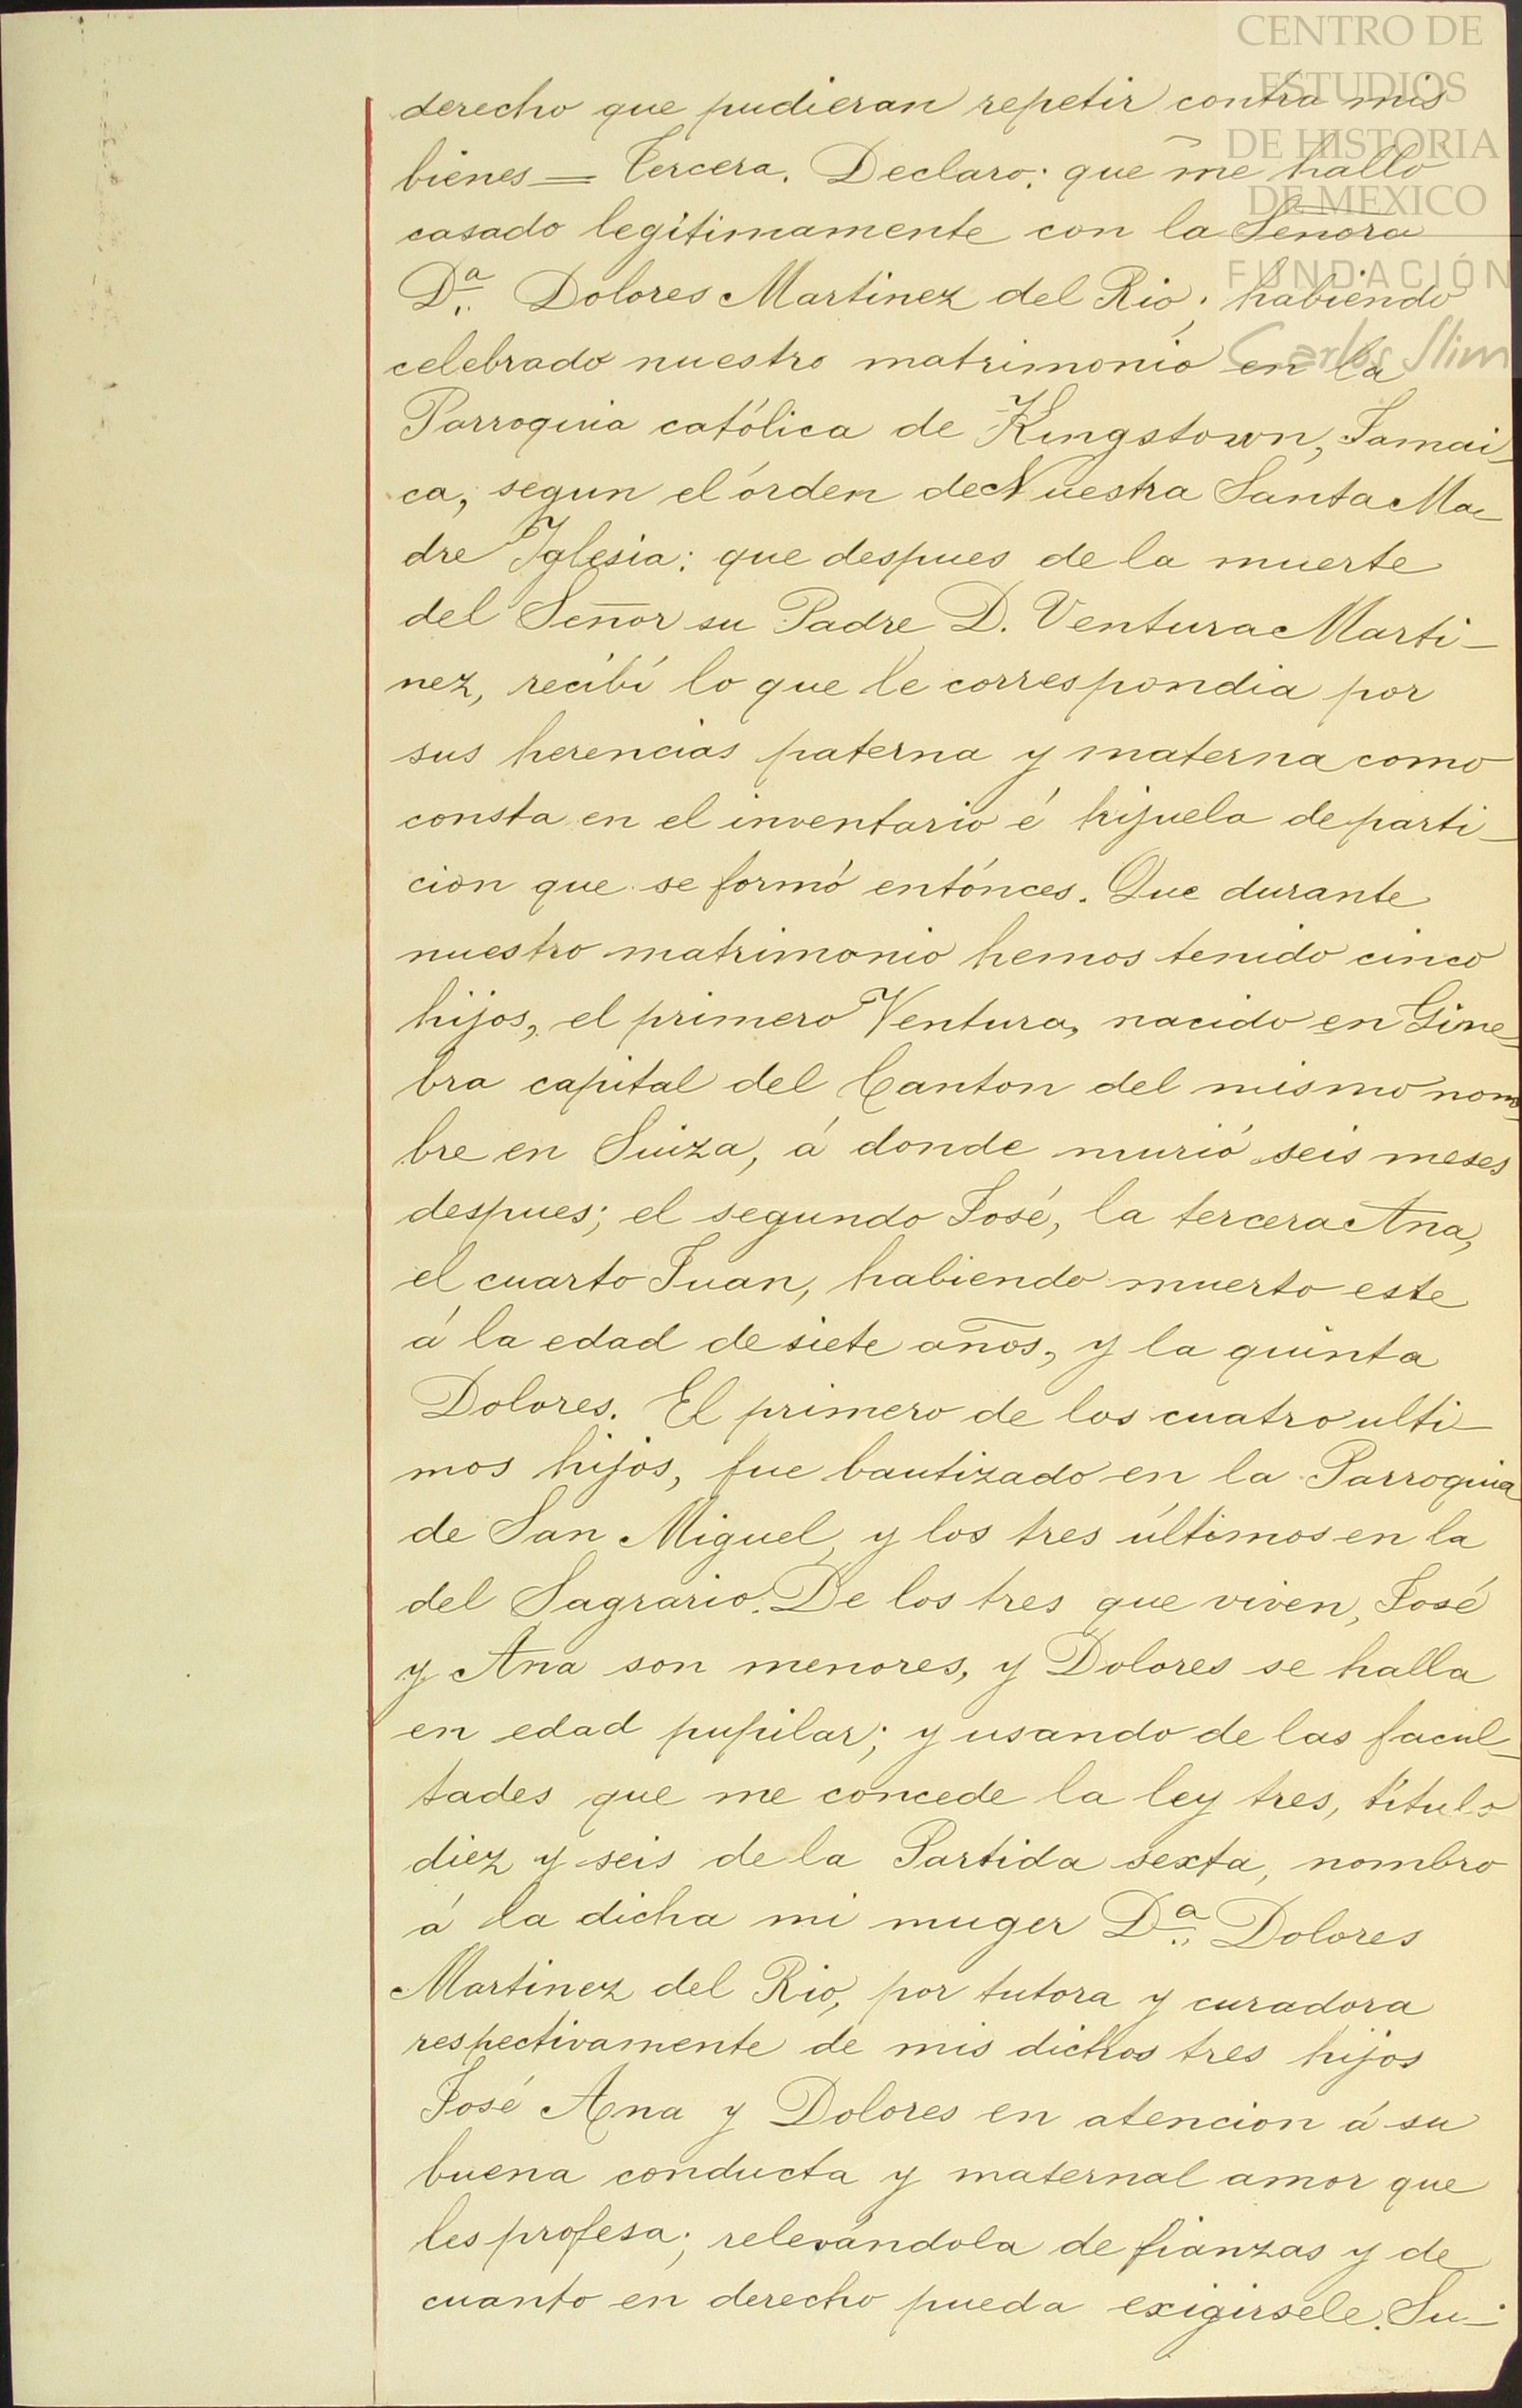 CENTRO DE
ESTUDIOS
DE HISTORIA
DE MEXICO
FUNDACIÓN
Carlos Slim
derecho que pudieran repetir contra mis
bienes = Tercera. Declaro: que me hallo
casado legítimamente con la Señora
Dª. Dolores Martinez del Rio; habiendo
celebrado nuestro matrimonio en la
Parroquia católica de Kingstown, Jamai-
ca, segun el órden de Nuestra Santa Ma-
dre Iglesia: que despues de la muerte
del Señor su Padre D. Ventura Marti-
nez, recibí lo que le correspondia por
sus herencias paterna y materna como
consta en el inventario é hijuela de parti-
cion que se formó entónces. Que durante
nuestro matrimonio hemos tenido cinco
hijos, el primero Ventura, nacido en Gine-
bra capital del Canton del mismo nom-
bre en Suiza, á donde murió seis meses
despues; el segundo José, la tercera Ana,
el cuarto Juan, habiendo muerto este
á la edad de siete años, y la quinta
Dolores. El primero de los cuatro ulti-
mos hijos, fue bautizado en la Parroquia
de San Miguel, y los tres últimos en la
del Sagrario. De los tres que viven, José
y Ana son menores, y Dolores se halla
en edad pupilar; y usando de las facul-
tades que me concede la ley tres, título
diez y seis de la Partida sexta, nombro
á la dicha mi muger Dª. Dolores
Martinez del Rio, por tutora y curadora
respectivamente de mis dichos tres hijos
José Ana y Dolores en atencion á su
buena conducta y maternal amor que
les profesa; relevándola de fianzas y de
cuanto en derecho pueda exigirsele. Su-